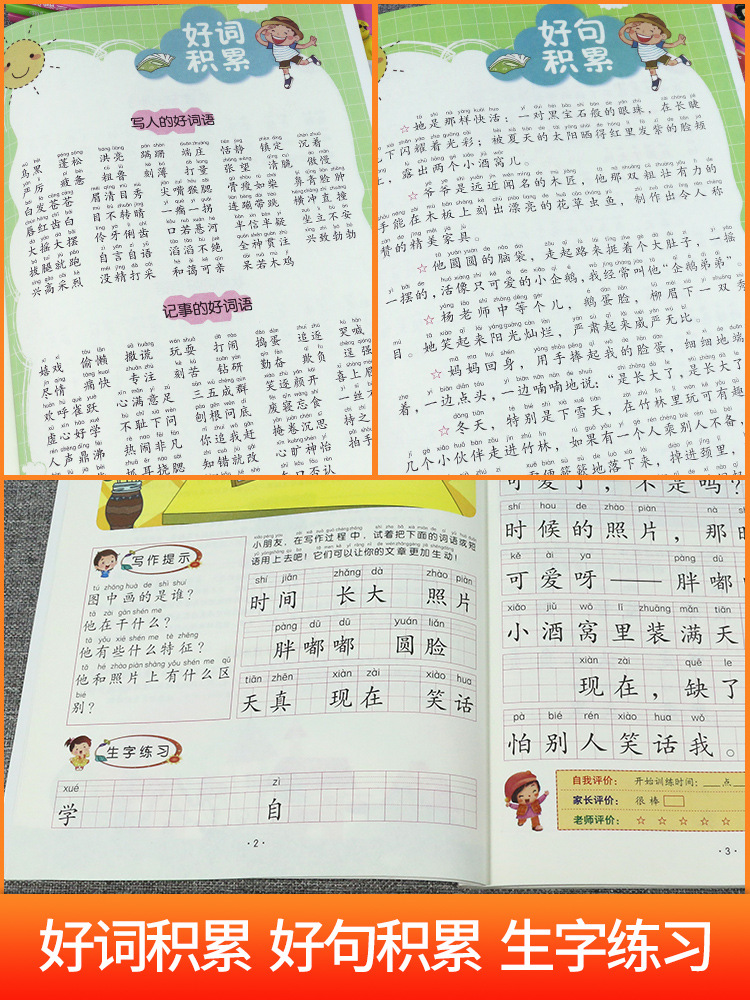 好词
积累
写人的好词语
乌黑 蓬松 洪亮 蹒跚 端庄 恬静 镇定 沉着
严厉 疲惫 粗鲁 刻薄 打量 张望 清脆 傲慢
白发苍苍 眉清目秀 尖嘴猴腮 骨瘦如柴 鼻青脸肿
唇红齿白 目不转睛 一瘸一拐 连蹦带跳 横冲直撞
大摇大摆 伶牙俐齿 口若悬河 半信半疑 坐立不安
拔腿就跑 自言自语 滔滔不绝 全神贯注 兴致勃勃
兴高采烈 没精打采 和蔼可亲 呆若木鸡
记事的好词语
嬉戏 偷懒 撒谎 玩耍 打闹 捣蛋 追逐 哭喊
尽情 痛快 专注 刻苦 钻研 勤奋 欺负 逞强
欢呼雀跃 心满意足 三五成群 笑逐颜开 喜上眉
虚心好学 不耻下问 刨根问底 废寝忘食 一丝不
人声鼎沸 热闹非凡 你追我赶 掩卷沉思 持之
抓耳挠腮 知错就改 心旷神怡 拍手
好句
积累
☆她是那样快活：一对黑宝石般的眼珠，在长睫
下闪耀着光彩；被夏天的太阳晒得红里发紫的脸颊
，露出两个小酒窝儿。
☆爷爷是远近闻名的木匠，他那双粗壮有力的
手能在木板上刻出漂亮的花草虫鱼，制作出令人称
赞的精美家具。
☆他圆圆的脑袋，走起路来挺着个大肚子，一摇
一摆的，活像只可爱的小企鹅，我经常叫他“企鹅弟弟”
☆杨老师中等个儿，鹅蛋脸，柳眉下一双秀
目。她笑起来阳光灿烂，严肃起来威严无比。
☆妈妈回身，用手捧起我的脸蛋，细细地端
看，一边点头，一边喃喃地说：“是长大了，是长大了
☆冬天，特别是下雪天，在竹林里玩可有趣
几个小伙伴走进竹林，如果有一个人乘别人不备，
雪便簌簌地落下来，掉进颈里，
写作提示
tú zhōng huà de shì shuí
图中画的是谁？
tā zài gàn shén me
他在干什么？
tā yǒu xiē shén me tè zhēng
他有些什么特征？
tā hé zhào piàn shàng yǒu shén me qū
他和照片上有什么区
bié
别？
小朋友，在写作过程中，试着把下面的词语或短
语用上去吧！它们可以让你的文章更加生动！
shí jiān zhǎng dà zhào piàn
时间 长大 照片
pàng dū dū yuán liǎn
胖嘟嘟 圆脸
tiān zhēn xiàn zài xiào hua
天真 现在 笑话
生字练习
xué zì
学 自
·2·
可爱了，不是吗？
shí hou de zhào piàn nà
时候的照片，那时
kě ài ya pàng dū
可爱呀——胖嘟
xiǎo jiǔ wō lǐ zhuāng mǎn tiān
小酒窝里装满天
xiàn zài quē le
现在，缺了
pà bié rén xiào hua wǒ
怕别人笑话我。
自我评价： 开始训练时间：＿＿点
家长评价： 很棒
老师评价： ☆ ☆ ☆ ☆ ☆
·3·
好词积累 好句积累 生字练习